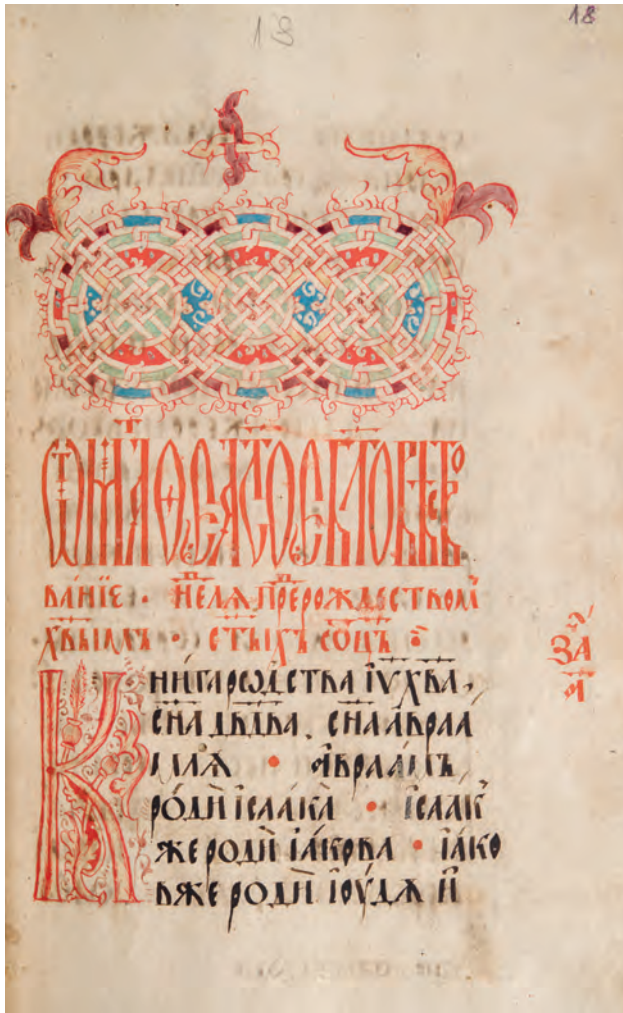 18
18
Ѿ маѳеа с҃тое бл҃говѣст
ваніе · нелѧ прⷣерождествоⷨ
хв҃ыимъ · ст҃ыхъ ѡц҃ъ
заⷱ а҃
Книга рѡдства і҃ѵ х҃ва,
сн҃а дв҃два, сн҃а авраа
млѧ • авраамъ
роди̇̀ ісаака • ісаак
же роди̇̀ іакова • іако
вже роди̇̀ іоудѧ и̇̀